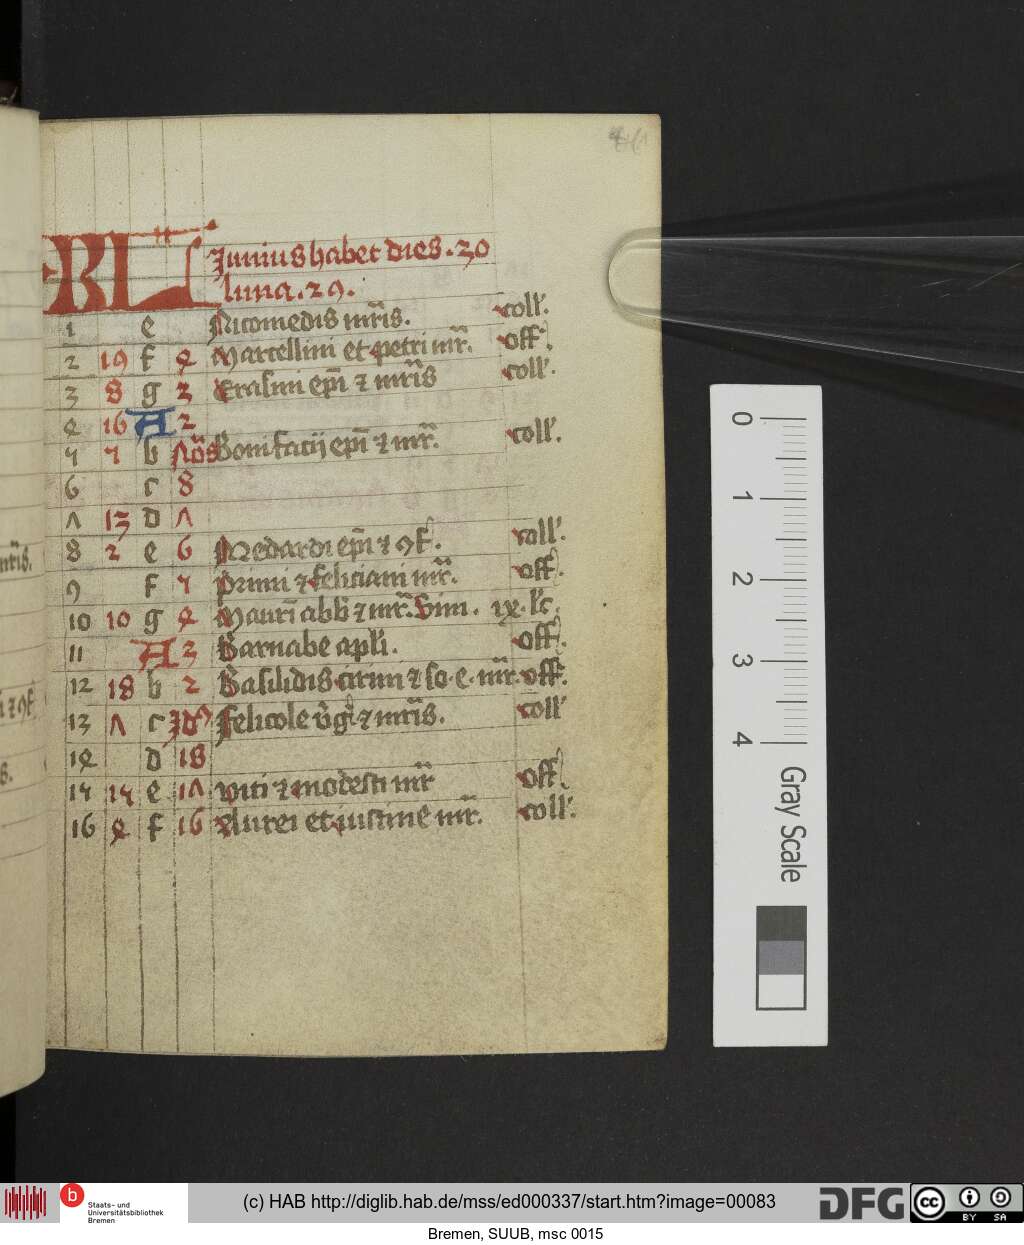 KL Junius habet dies . 30
luna . 29 .
1 e Nicomedis mr̄is . coll'.
2 19 f 4 Marcellini et petri mr̄. off'.
3 8 g 3 Erasmi ep̄i ⁊ mr̄is coll'.
4 16 A 2
5 5 b Nō͛s Bonifacij ep̄i ⁊ mr̄. coll'.
6 c 8
7 13 d 7
8 2 e 6 Medardi ep̄i ⁊ ꝯf. coll'.
9 f 5 Primi ⁊ feliciani mr̄. off'.
10 10 g 4 Mauri abb̄ ⁊ mr̄. ix. lc̄.
11 A 3 Barnabe apl̄i . off'.
12 18 b 2 Basilidis cirini ⁊ so. e. mr̄. off'.
13 7 c Jdꝰ Felicole v̄gī ⁊ mr̄is . coll'
14 d 18
15 15 e 17 Viti ⁊ modesti mr̄ off'.
16 4 f 16 Aurei et iustine mr̄. coll'.
mr̄is.
⁊ ꝯf
0
1
2
3
4
Gray Scale
b
Staats- und
Universitätsbibliothek
Bremen
(c) HAB http://diglib.hab.de/mss/ed000337/start.htm?image=00083
DFG
cc
BY SA
Bremen, SUUB, msc 0015